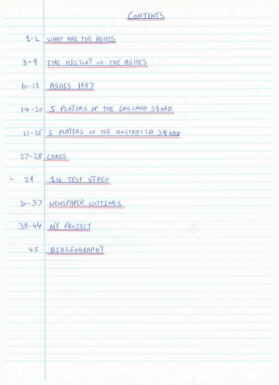 CONTENTS
1-2 WHAT ARE THE ASHES
3-9 THE HISTORY OF THE ASHES
10-13 ASHES 1997
14-20 5 PLAYERS OF THE ENGLAND SQUAD
21-26 5 PLAYERS OF THE AUSTRALIA SQUAD
27-28 LORDS
29 1st TEST
30-37 NEWSPAPER CUTTINGS
38-44 MY PROJECT
45 BIBLIOGRAPHY